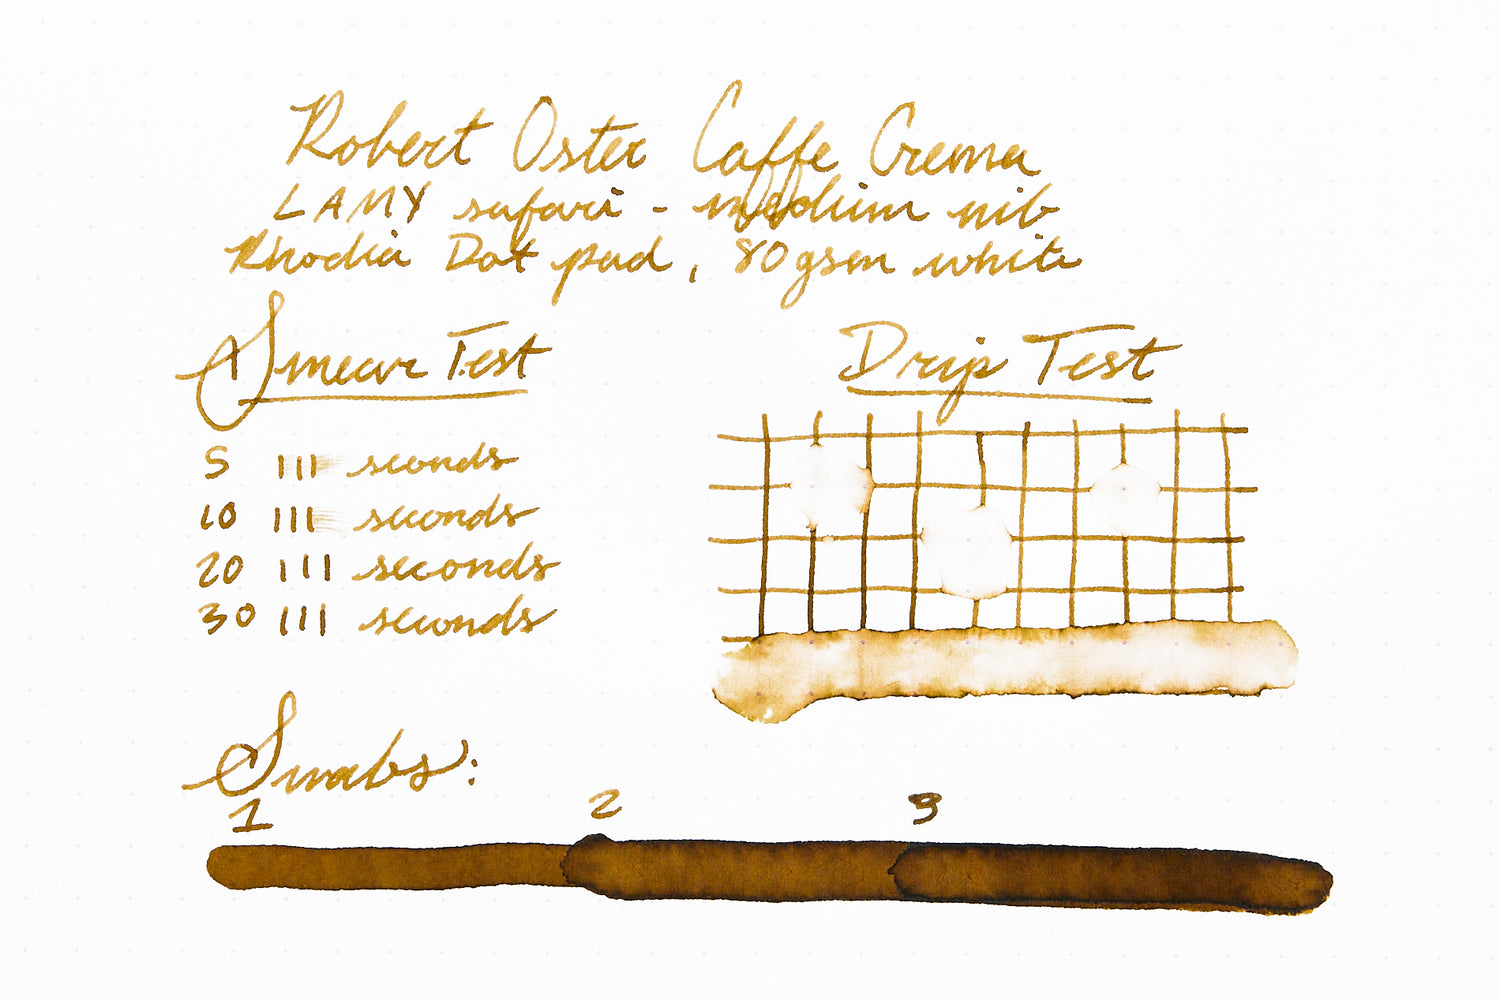 Robert Oster Caffe Crema
LAMY safari - medium nib
Rhodia Dot pad, 80gsm white
Smear Test
Drip Test
5 III seconds
10 III seconds
20 III seconds
30 III seconds
Swabs:
1 2 3